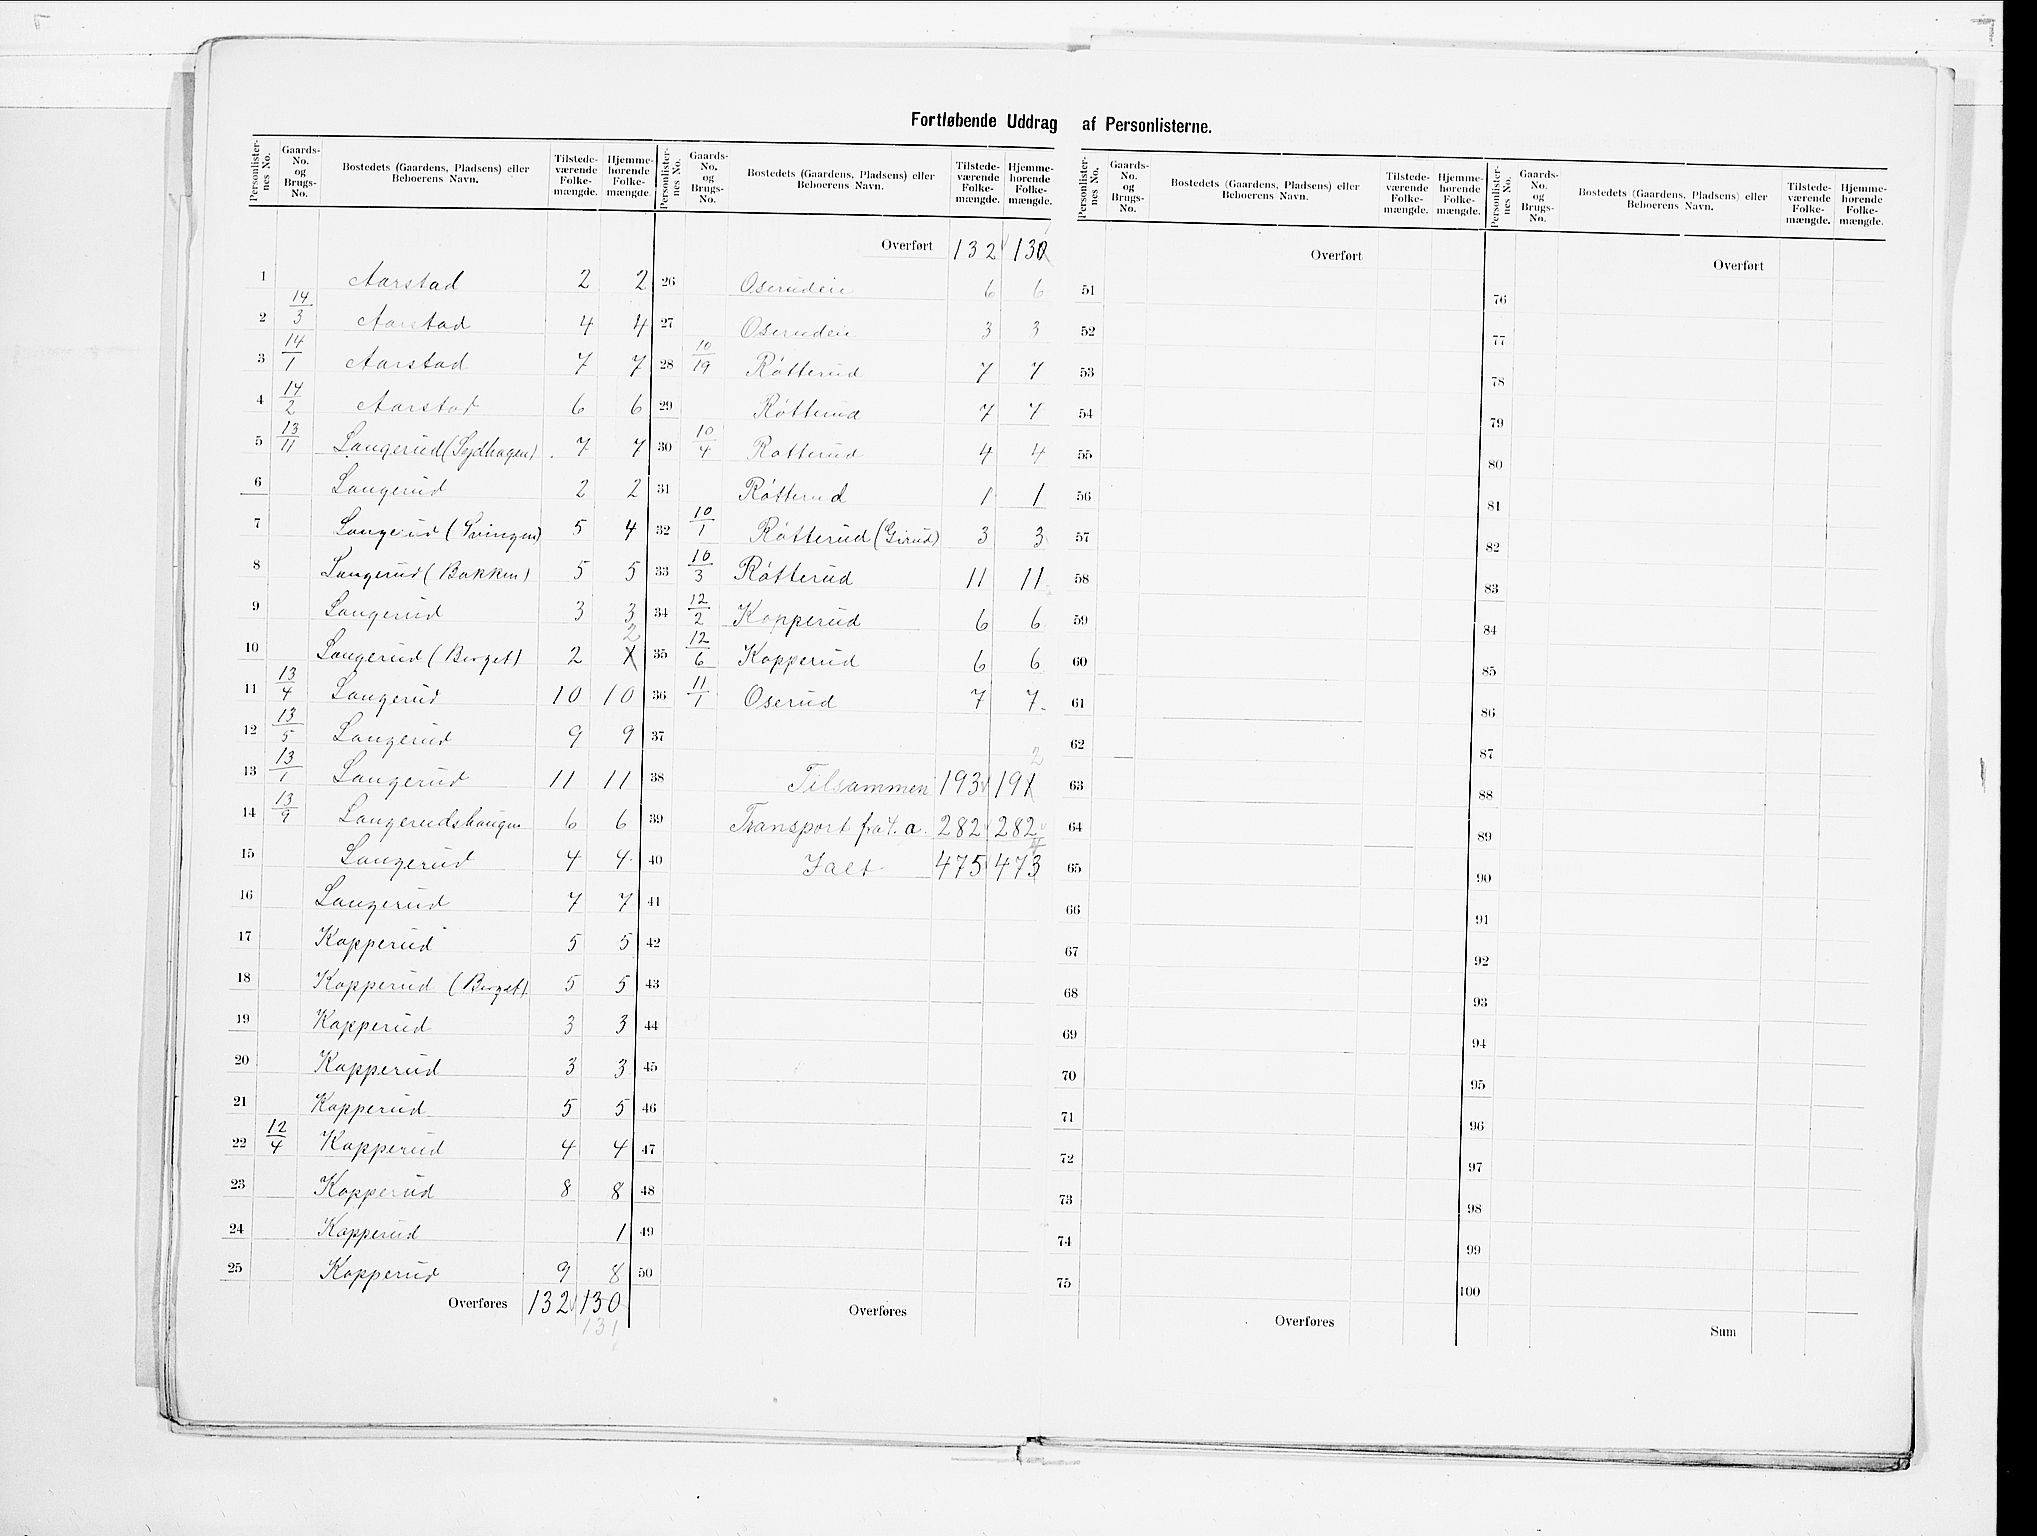 Fortløbende Uddrag af Personlisterne.
Personlister-nes No. Gaards-No. og Brugs-No. Bostedets (Gaardens, Pladsens) eller Beboerens Navn. Tilstede-værende Folke-mængde. Hjemme-hørende Folke-mængde.
1 Aarstad 2 2
2 14/3 Aarstad 4 4
3 14/1 Aarstad 7 7
4 14/2 Aarstad 6 6
5 13/11 Langerud (Lejdhagen) 7 7
6 Langerud 2 2
7 Langerud (Svingen) 5 4
8 Langerud (Bakken) 5 5
9 Langerud 3 3
10 Langerud (Berget) 2 1 2
11 13/4 Langerud 10 10
12 13/5 Langerud 9 9
13 13/1 Langerud 11 11
14 13/9 Langerudshaugen 6 6
15 Langerud 4 4
16 Langerud 7 7
17 Kopperud 5 5
18 Kopperud (Berget) 5 5
19 Kopperud 3 3
20 Kopperud 3 3
21 Kopperud 5 5
22 12/4 Kopperud 4 4
23 Kopperud 8 8
24 Kopperud 1
25 Kopperud 9 8
Overføres 132 130
131
Personlister-nes No. Gaards-No. og Brugs-No. Bostedets (Gaardens, Pladsens) eller Beboerens Navn. Tilstede-værende Folke-mængde. Hjemme-hørende Folke-mængde.
Overført 132 130
26 Oserudeie 6 6
27 Oserudeie 3 3
28 10/19 Røtterud 7 7
29 Røtterud 7 7
30 10/4 Røtterud 4 4
31 Røtterud 1 1
32 10/1 Røtterud (Girud) 3 3
33 10/3 Røtterud 11 11
34 12/2 Kopperud 6 6
35 12/6 Kopperud 6 6
36 11/1 Oserud 7 7
37
38 Tilsammen 193 191 2
39 Transport fra l. a. 282 282
40 Ialt 475 473 4
41
42
43
44
45
46
47
48
49
50
Overføres
Personlister-nes No. Gaards-No. og Brugs-No. Bostedets (Gaardens, Pladsens) eller Beboerens Navn. Tilstede-værende Folke-mængde. Hjemme-hørende Folke-mængde.
Overført
51
52
53
54
55
56
57
58
59
60
61
62
63
64
65
66
67
68
69
70
71
72
73
74
75
Overføres
Personlister-nes No. Gaards-No. og Brugs-No. Bostedets (Gaardens, Pladsens) eller Beboerens Navn. Tilstede-værende Folke-mængde. Hjemme-hørende Folke-mængde.
Overført
76
77
78
79
80
81
82
83
84
85
86
87
88
89
90
91
92
93
94
95
96
97
98
99
100
Sum